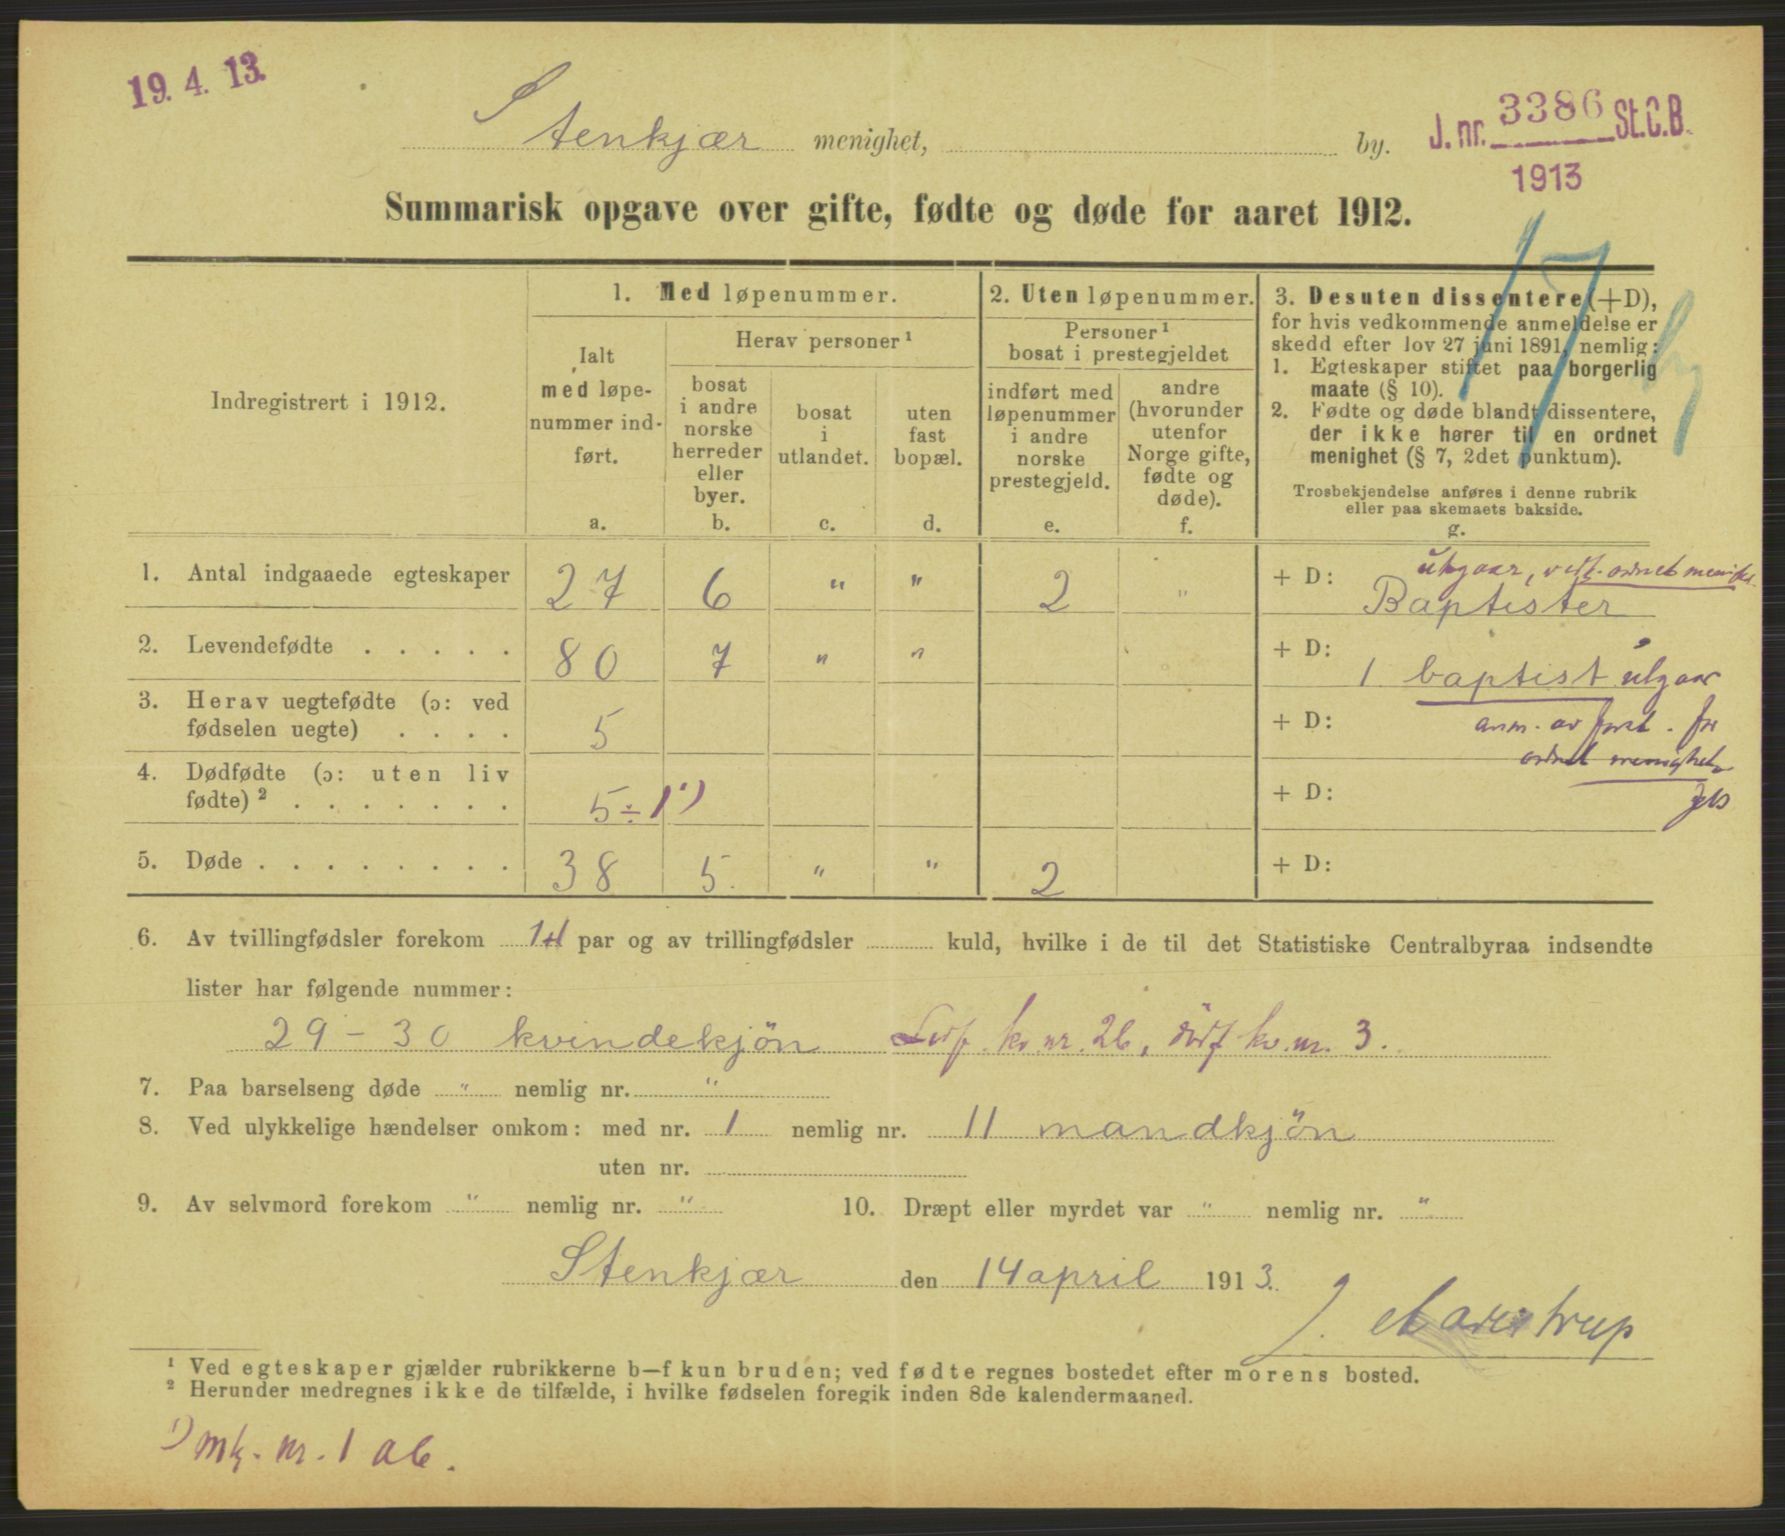 19. 4. 13.
Stenkjær menighet, by.
J. nr. 3386 St.C.B.
1913
Summarisk opgave over gifte, fødte og døde for aaret 1912.
17
Indregistrert i 1912.
1. Med løpenummer.
Ialt
med løpe-
nummer ind-
ført.
a.
Herav personer ¹
bosat
i andre
norske
herreder
eller
byer.
b.
bosat
i
utlandet.
c.
uten
fast
bopæl.
d.
2. Uten løpenummer.
Personer ¹
bosat i prestegjeldet
indført med
løpenummer
i andre
norske
prestegjeld.
e.
andre
(hvorunder
utenfor
Norge gifte,
fødte og
døde).
f.
3. Desuten dissentere (+D),
for hvis vedkommende anmeldelse er
skedd efter lov 27 juni 1891, nemlig:
1. Egteskaper stiftet paa borgerlig
maate (§ 10).
2. Fødte og døde blandt dissentere,
der ikke hører til en ordnet
menighet (§ 7, 2det punktum).
Trosbekjendelse anføres i denne rubrik
eller paa skemaets bakside.
g.
1. Antal indgaaede egteskaper 27 6 " " 2 " + D: utgaar, ordnet
Baptister
2. Levendefødte . . . . . 80 7 " " + D: 1 baptist utgaar
3. Herav uegtefødte (ɔ: ved
fødselen uegte) . . . . 5 + D: anm. av for
ordnet menighet
4. Dødfødte (ɔ: uten liv
fødte) ² . . . . . . . 5 ÷ 1 ¹) + D:
5. Døde . . . . . . . . 38 5. " " 2 + D:
6. Av tvillingfødsler forekom 1+1 par og av trillingfødsler kuld, hvilke i de til det Statistiske Centralbyraa indsendte
lister har følgende nummer:
29 - 30 kvindekjön Levf. kv. nr. 26, dødf kv. nr. 3.
7. Paa barselseng døde " nemlig nr. "
8. Ved ulykkelige hændelser omkom: med nr. 1 nemlig nr. 11 mandkjön
uten nr.
9. Av selvmord forekom " nemlig nr. " 10. Dræpt eller myrdet var " nemlig nr. "
Stenkjær den 14 april 1913.
J.
¹ Ved egteskaper gjælder rubrikkerne b—f kun bruden; ved fødte regnes bostedet efter morens bosted.
² Herunder medregnes ikke de tilfælde, i hvilke fødselen foregik inden 8de kalendermaaned.
¹) mk. nr. 1 ab.